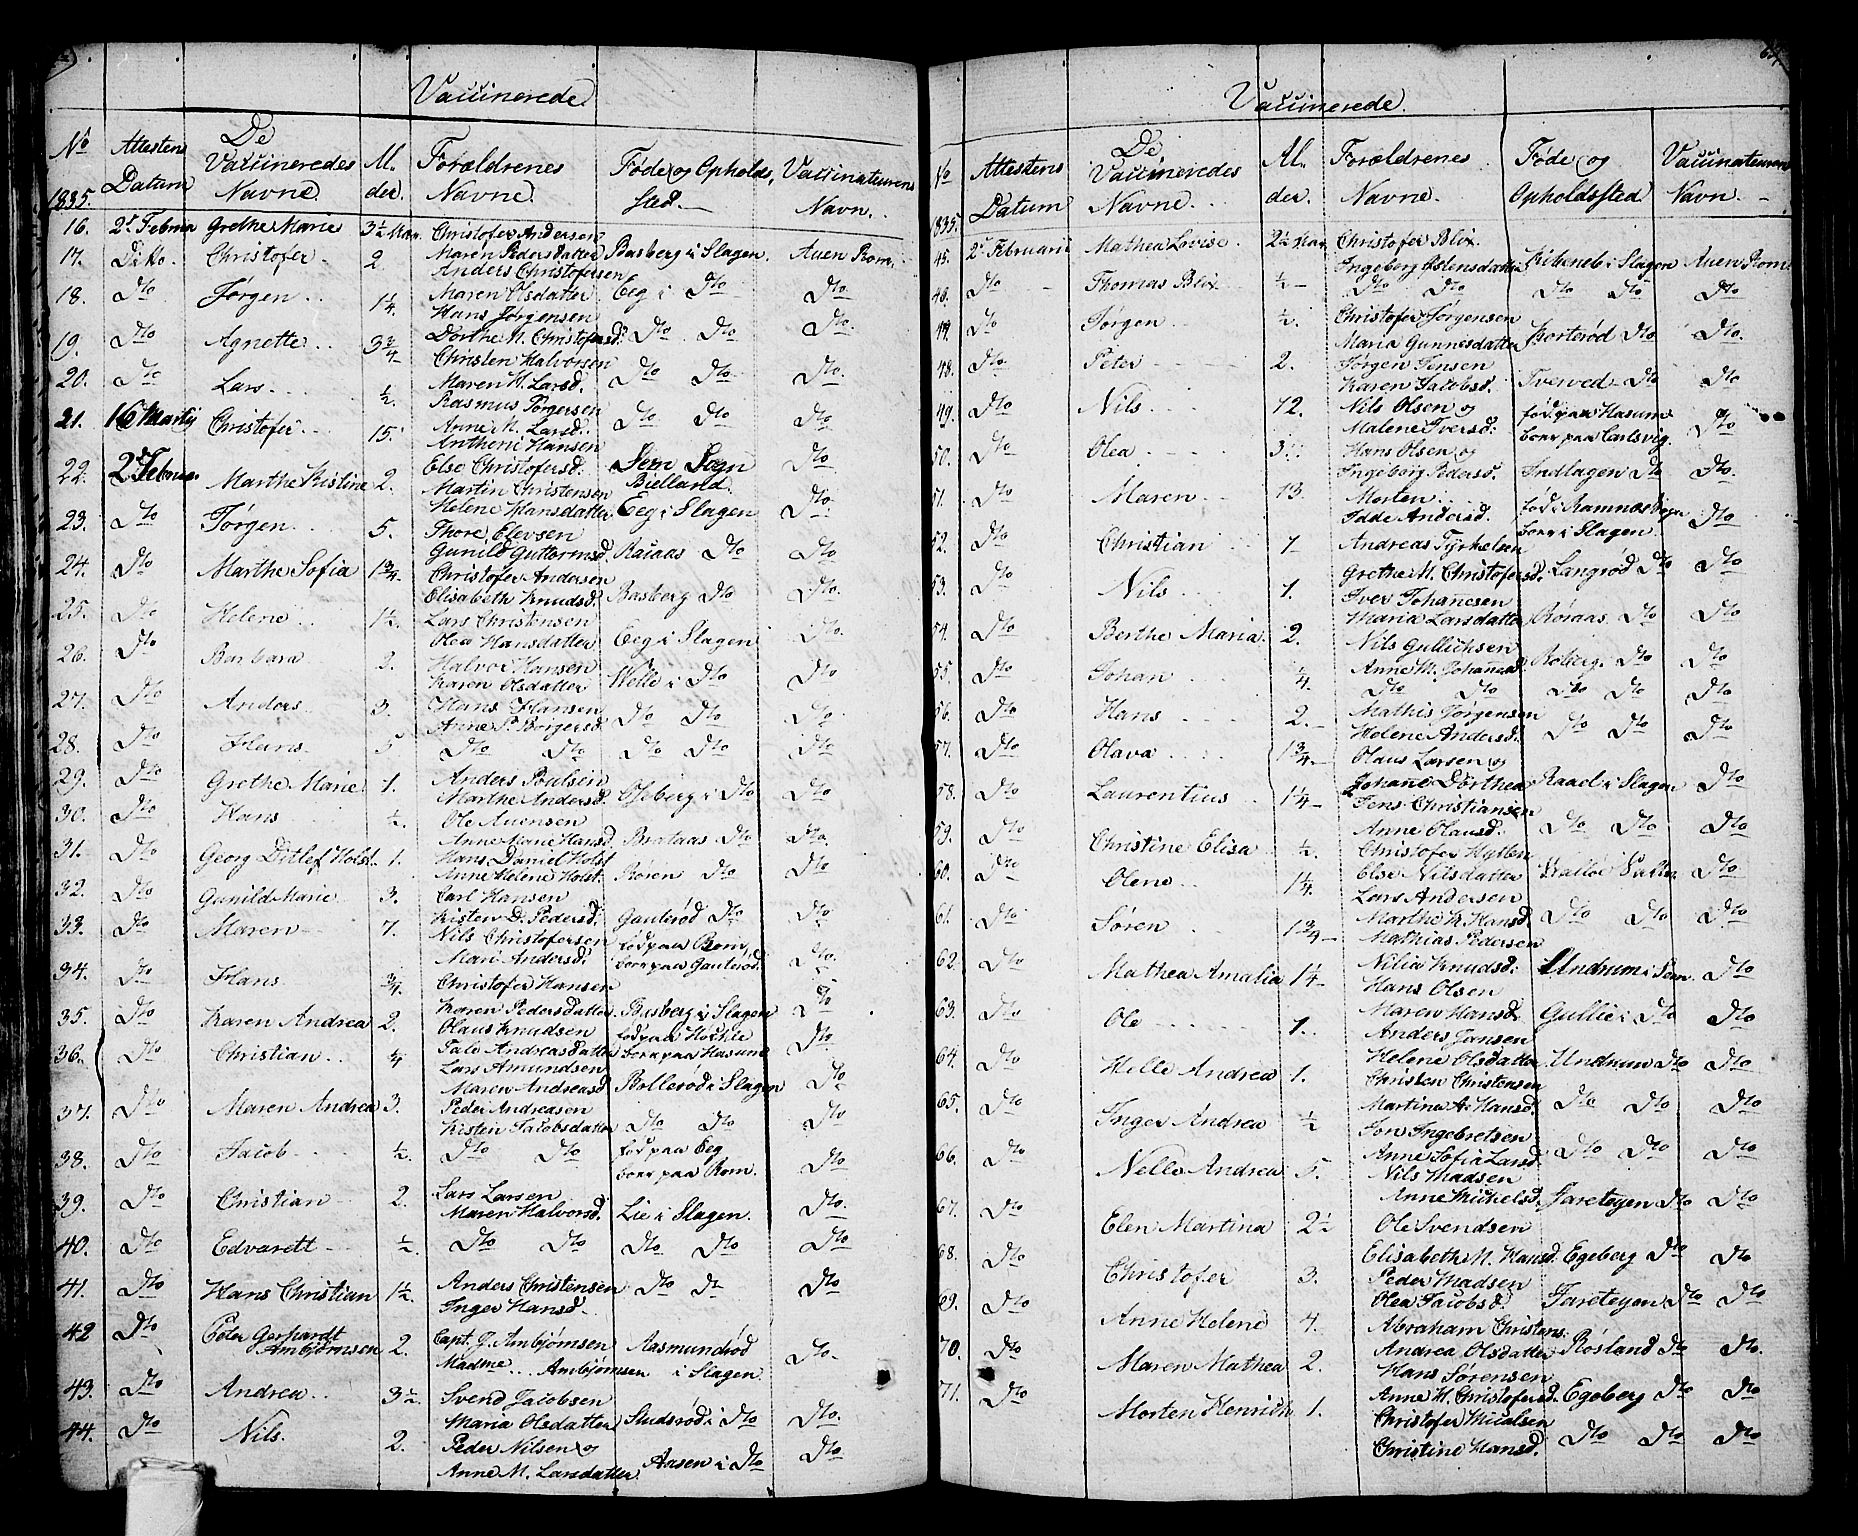 Vaccinerede
No 1835. Attestens Datum De Vaccineredes Navne. Alder. Forældrenes Navne. Føde og Opholds Sted. Vaccinateurens Navn.
16. 2 Februar Grethe Marie 3½ Christofer Andersen
Maren Pedersdatter Basberg i Slagen. Auen Rom.
17. Ditto. Christofer 2. Anders Christofersen
Maren Olsdatter Eeg i Dto Dto
18. Dto Jørgen 1¼ Hans Jørgensen
Dorthe M. Christofersd: Dto Dto Dto
19. Dto Agnette 3¾ Christen Halvorsen
Maren H. Larsd. Dto Dto Dto
20. Dto Lars ½ Rasmus Jørgersen
Anne M. Larsd. Dto Dto Dto
21. 16 Martij Christofer 15. Antheni Hansen
Else Christofersd. Sem Sogn Bielland. Dto
22. 2 Februar Marthe Kistine 2. Martin Christensen
Helene Hansdatter Eeg i Slagen Dto
23. Dto Jørgen 5. Thore Elevsen
Gunild Guttormsd. Raaaas Dto Dto
24. Dto Marthe Sofia 1¾ Christofer Andersen
Elisabeth Knudsd. Basberg Dto Dto
25. Dto Helene 1½ Lars Christensen
Olea Hansdatter Eeg i Slagen Dto
26. Dto Barbara 2. Halvor Hansen
Karen Olsdatter Welle i Dto Dto
27. Dto Anders 3. Hans Hansen
Anne P. Borgersd. Dto Dto Dto
28. Dto Hans 5 Dto Dto Dto Dto Dto
29. Dto Grethe Marie 1. Anders Poulsen
Marthe Andersd. Oseberg i Dto Dto
30. Dto Hans ½ Ole Auensen
Anne Marie Hansd. Brataas Dto Dto
31. Dto Georg Ditlef Holst 1. Hans Daniel Holst
Anne Helene Holst. Røren Dto Dto
32. Dto Gunild Marie 3. Carl Hansen
Kisten D. Pedersd. Gauterød Dto Dto
33. Dto Maren 7. Nils Christofersen fød paa Rom,
Mari Andersd. boer paa Gauterød. Dto
34. Dto Hans ¾ Christofer Hansen
Karen Pedersdatter Basberg i Slagen Dto
35. Dto Karen Andrea 2. Olaus Knudsen fød paa
Tale Andreasdatter boer paa Hasum Dto
36. Dto Christian ¼ Lars Amundsen
Maren Andreasd Bollerød i Slagen Dto
37. Dto Maren Andrea 3. Peder Andreasen
Kisten Jacobsdatter Dto Dto Dto
38. Dto Jacob ½ Dto Dto fød paa Eeg
boer paa Rom. Dto
39. Dto Christian 2. Lars Larsen
Maren Halvorsd. Lie i Slagen. Dto
40. Dto Edvarett ½ Dto Dto Dto Dto Dto
41. Dto Hans Christian 1½ Anders Christensen Dto Dt Dto
Inger Hansd.
42 Dto Peter Gerhardt Ambjørnsen 2. Capt. J. Ambjørnsen Aasmundrød
Madme Ambjørnsen i Slagen. Dto
43. Dto Andrea 3½ Svend Jacobsen
Maria Olsdatter Studsrød i Dto Dto.
44. Dto Nils. 2. Peder Nilsen og
Anne M. Larsdatter Aasen i Dto Dto
64.
Vaccinerede.
No 1835. Attestens Datum De Vaccineredes Navne. Alder. Forældrenes Navne. Føde og Opholdssted Vaccinateurens Navn.
45. 2 Februarii Mathea Lovise. 2½ Christofer Blix.
Ingeborg Østensdatter Kirkeneb i Slagen Auen Rom
Dto Thomas Blix ½ Dto Dto Dto Dto Dto
Dto Jørgen ½. Christofer Jørgensen
Maria Gunnesdatter Horterød Dto Dto.
48. Dto Peter 2. Jørgen Jensen
Karen Jacobsd. Tveeved Dto Dto
49. Dto Nils 12. Nils Olsen og fød paa Hasum
Malene Iversd: boer paa Carlsvig. Dto
50. Dto Olea 3 Hans Olsen og
Ingeborg Pedersd. Indlagen Dto Dto.
51. Dto Maren 13. Morten fød i Ramnæs Sogn
Idde Andersd. boer i Slagen. Dto
52. Dto Christian 7 Andreas Tyrkelsen
Grethe M. Christofersd. Langrød Dto Dto
53. Dto Nils 1. Iver Johanesen
Maria Larsdatter Røraas Dto Dto
54. Dto Berthe Maria. 2. Nils Gullichsen
Anne M. Johanesd. Roberg. Dto Dto
55. Dto Johan ¼ Dto Dto Dto Dto Dto
56. Dto Hans 2. Mathis Jørgensen
Helene Andersd. Dto Dto Dto
57. Dto Olava 1¾ Olaus Larsen og
Johane Dorthea Raael i Slagen Dto
58. Dto Laurentius 1¼ Jens Christiansen
Anne Olausd. Dto Dto Dto
59. Dto Christine Elisa ½. Christofer Hytten
Else Nilsdatter Valløe Salten Dto
60. Dto Olene 1¼ Lars Andersen
Marthe K. Hansd. Dto Dto Dto
61. Dto Søren 1¾ Mathias Pedersen
Nilia Knudsd: Undrum i Sem. Dto
62. Dto Mathea Amalia 1¼ Hans Olsen
Maren Hansd. Gullie i Dto Dto
63. Dto Ole 1. Anders Jonsen
Helene Olsdatter Undrum Dto Dto
64. Dto Helle Andrea 1. Christen Christensen
Martina A. Hansd. Dto Dto Dto
65. Dto Inger Andrea ½ Jon Ingebretsen
Anne Sofia Larsd. Dto Dto Dto
66. Dto Nelle Andrea 5. Nils Madsen
Anne Mickelsd. Jareteyen Dto Dto
67. Dto Elen Martina 2½ Ole Svendsen
Elisabeth M. Hansd. Egeberg Dto Dto
68. Dto Christofer 3. Peder Madsen
Olea Jacobsd. Jareteyen Dto Dto
69. Dto Anne Helene 4. Abraham Christens:
Andrea Olsdatter Røsland Dto Dto.
70. Dto Maren Mathea 2. Hans Sørensen
Anne M. Christofersd. Egeberg Dto Dto
71. Dto Morten Henrich 1. Christofer Micalsen
Christine Hansd. Dto Dto Dto